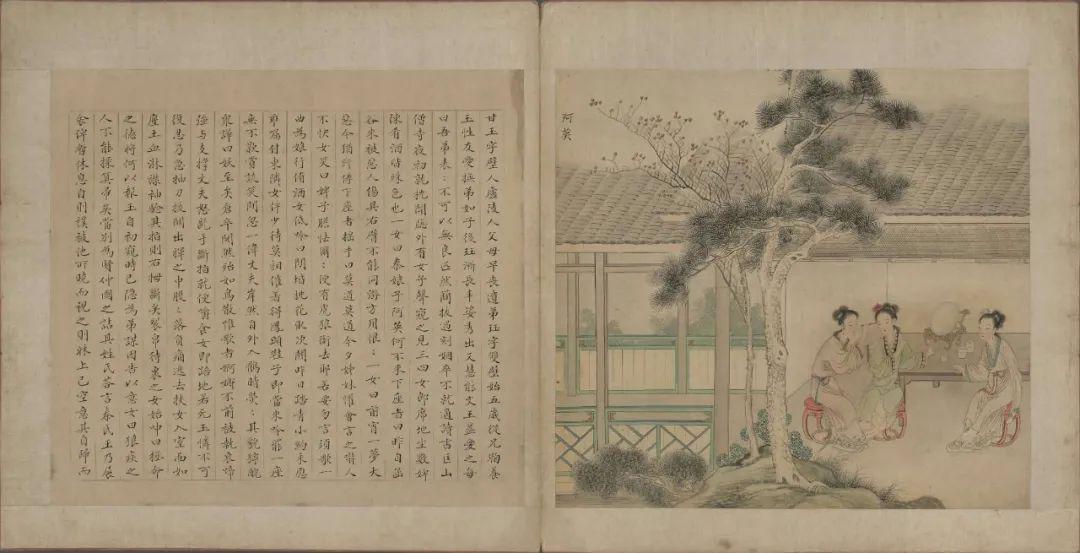 甘玉字璧人廬陵人父母早喪遺弟珏字雙璧始五歲從兄鞠養
玉性友愛撫弟如子後珏漸長丰姿秀出又慧能文玉益愛之每
曰吾弟表〻不可以無良匹然簡拔過刻姻卒不就適讀書匡山
僧寺夜初就枕聞窗外有女子聲窺之見三四女郎席地坐數婢
陳肴酒皆殊色也一女曰秦娘子阿英何不來下座者曰昨自函
谷來被惡人傷其右臂不能同游方用恨〻一女曰前宵一夢大
惡今猶汗悸下座者搖手曰莫道莫道今夕姊妹懽會言之嚇人
不快女笑曰婢子膽怯爾〻便有虎狼銜去耶若要勿言須歌一
曲為娘行侑酒女低吟曰閒階桃花取次開昨日踏青小約未應
乖屬付東鄰女伴少待莫相催著得鳳頭鞋子即當來吟罷一座
無不歎賞談笑間忽一偉丈夫岸然自外入鶻睛熒〻其貌獰醜
衆譁曰妖至矣倉卒鬨然殆如鳥散惟歌者婀娜不前被執哀啼
強與支撐丈夫怒齕手斷指就便嚼食女即踣地若死玉憐不可
復忍乃急抽刀拔關出揮之中股〻落負痛逃去扶女入室面如
塵土血淋襟袖驗其指則右拇斷矣裂帛待裹之女始呻曰拯命
之德將何以報玉自初窺時已隱為弟謀因告以意女曰狼疾之
人不能操箕帚矣當別為賢仲圖之詰其姓氏答言秦氏玉乃展
衾俾暫休息自則襆被他所曉而視之則牀上已空意其自歸而
阿英